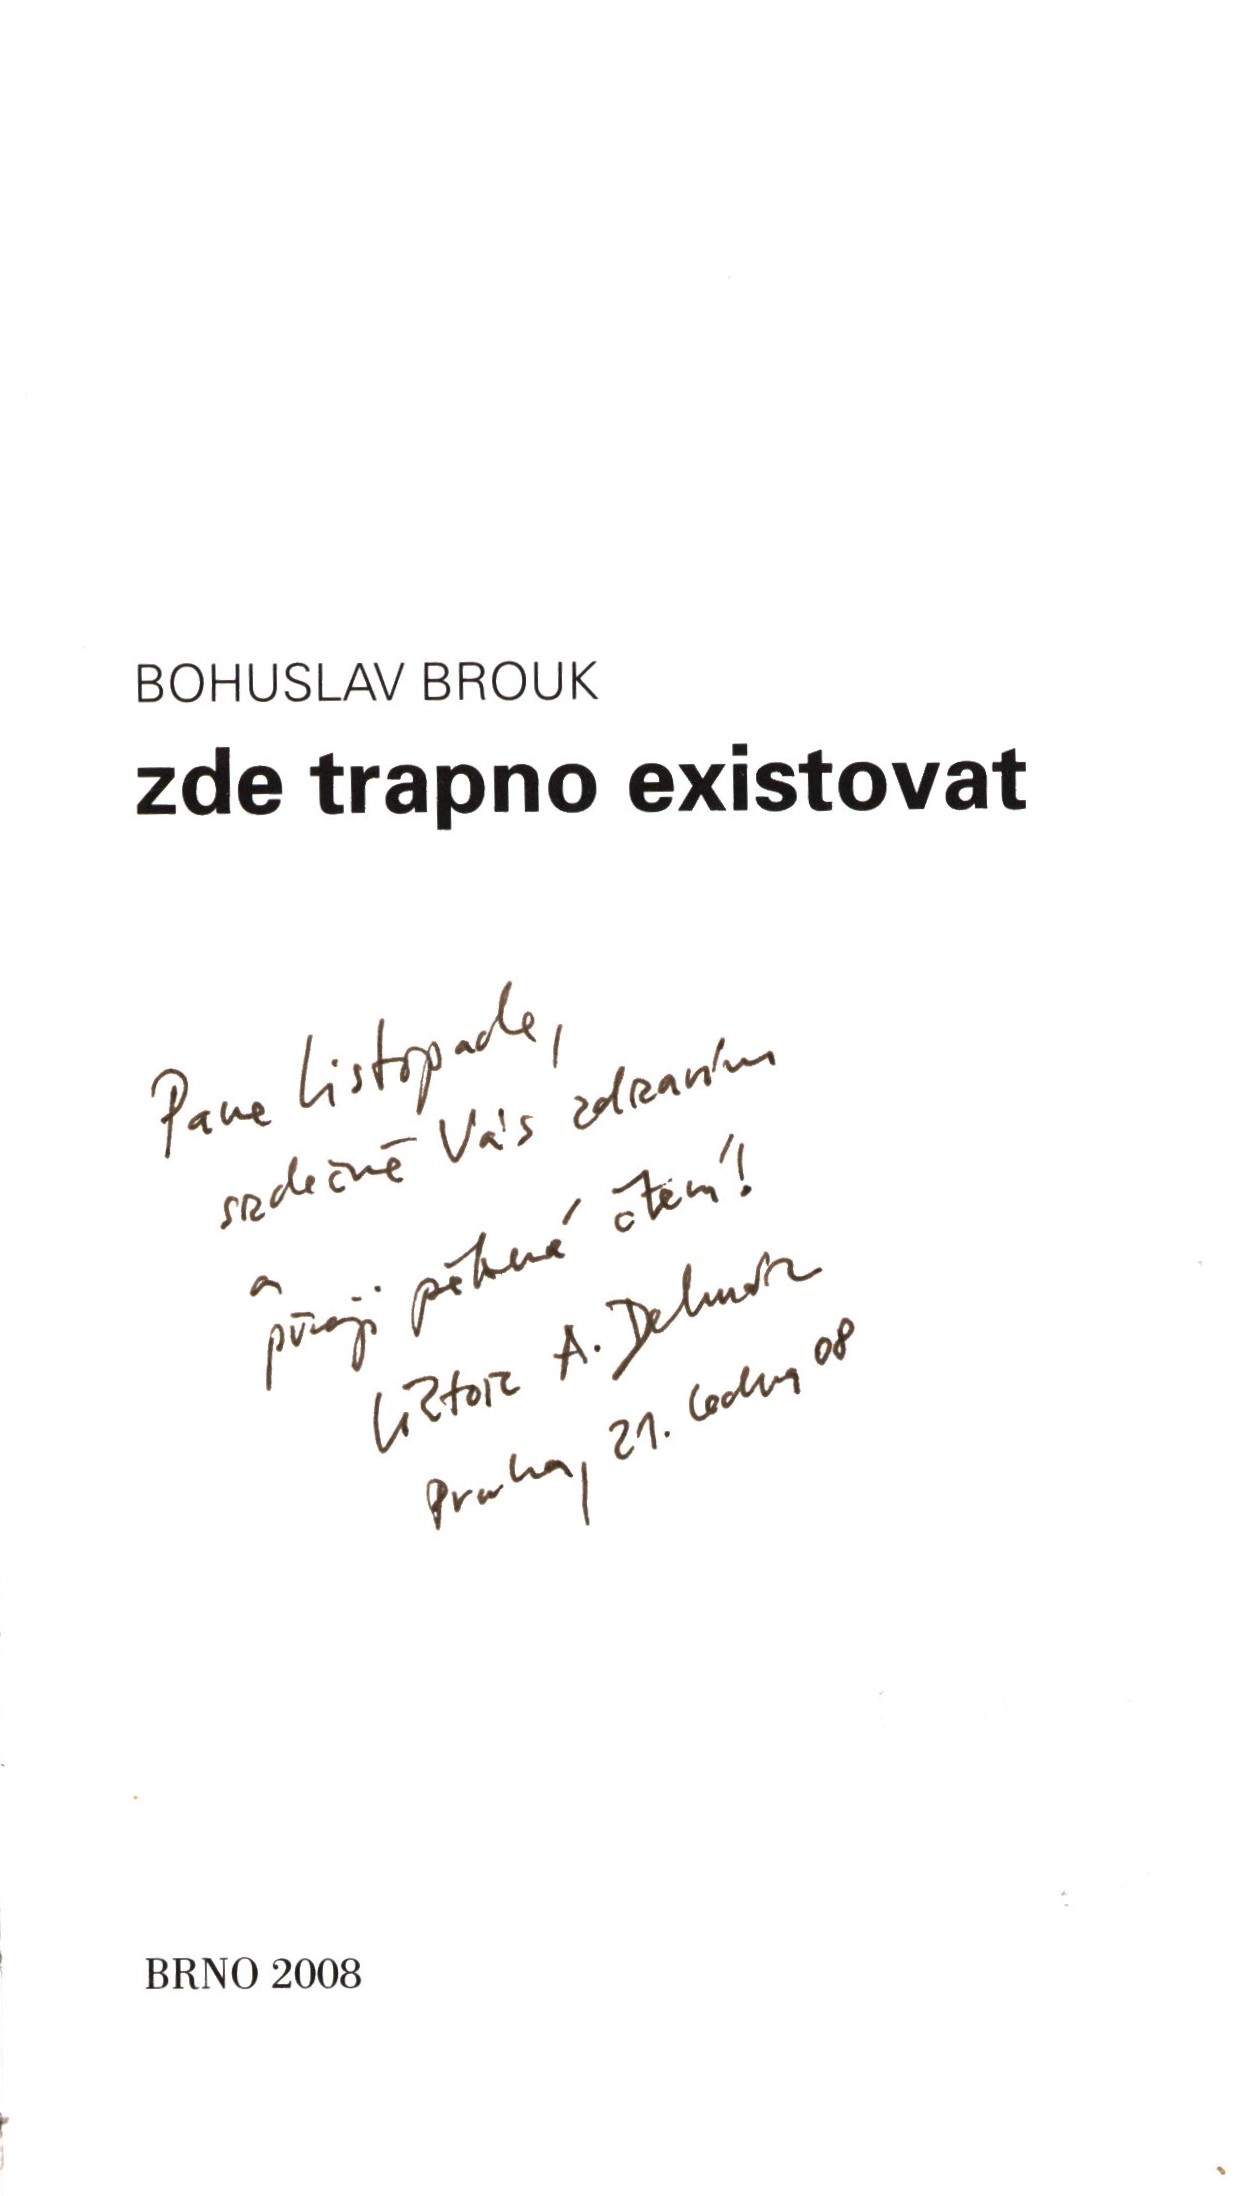 BOHUSLAV BROUK
zde trapno existovat
Pane Listopade,
srdečně Vás zdravím
a
přeji pěkné čtení!
Viktor A. Debnár
Praha, 21. ledna 08
BRNO 2008